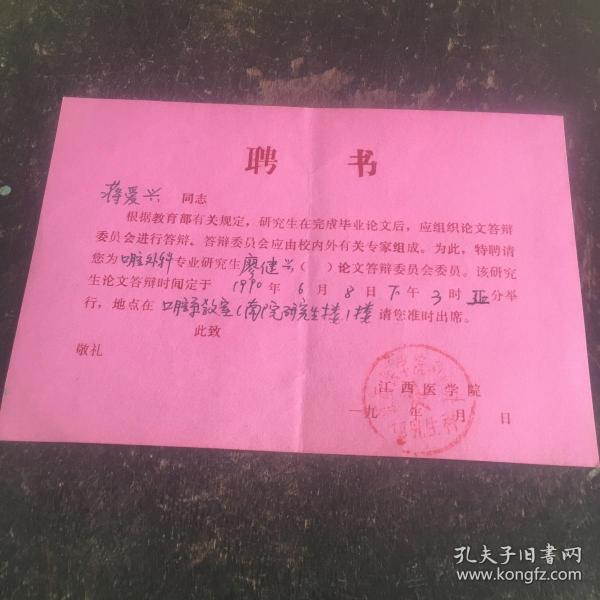 聘 书
蒋爱兴 同志
根据教育部有关规定，研究生在完成毕业论文后，应组织论文答辩
委员会进行答辩。答辩委员会应由校内外有关专家组成。为此，特聘请
您为口腔外科专业研究生廖健兴（ ）论文答辩委员会委员。该研究
生论文答辩时间定于 1990年 6 月 8 日 下午 3 时 正 分举
行，地点在 口腔教室（南院研究生楼1楼 请您准时出席。
此致
敬礼
江西医学院
一九 年 月 日
研究生科
孔夫子旧书网
www.kongfz.com